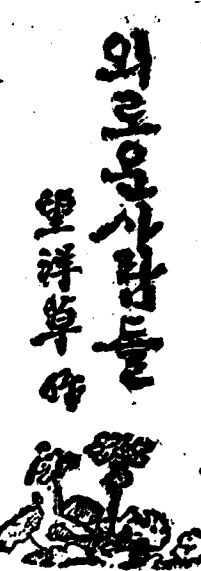 외로운사람들
望洋草 作